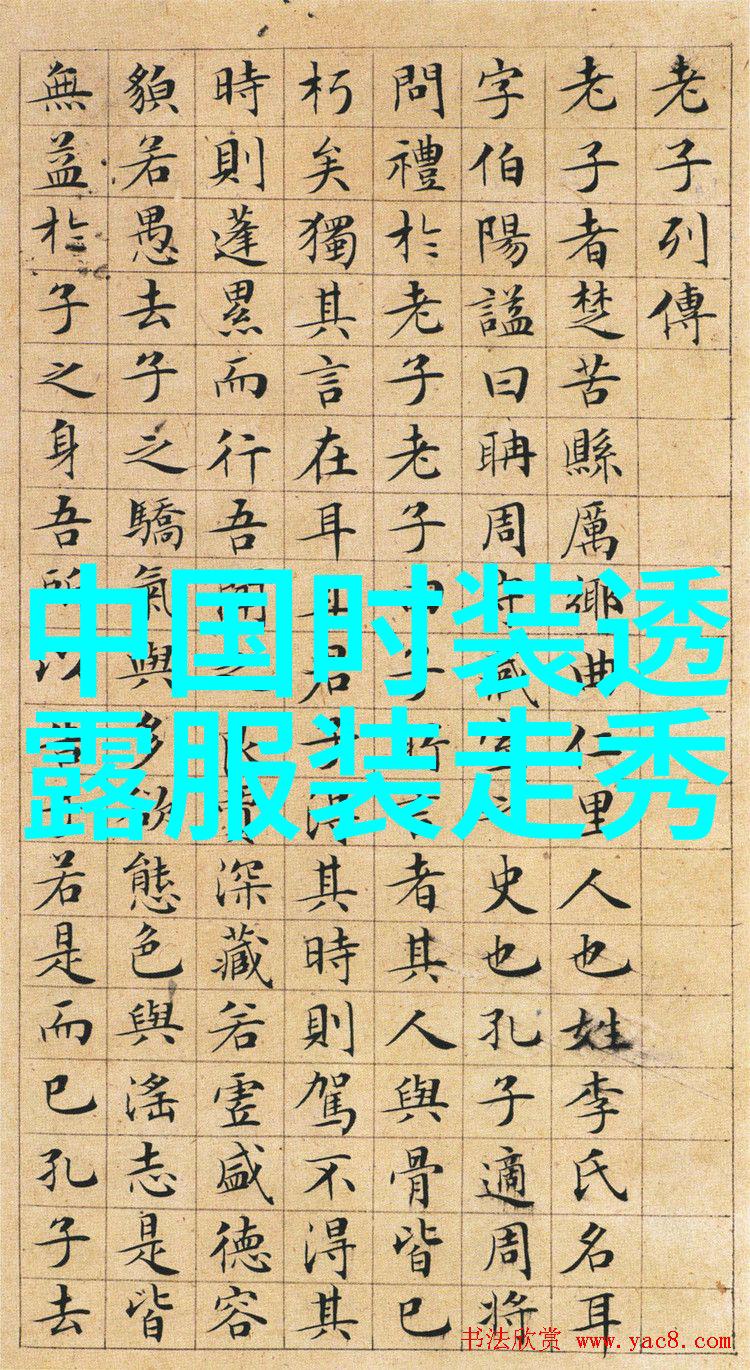 老子列傳
老子者楚苦縣厲鄉曲仁里人也姓李氏名耳
字伯陽謚曰聃周守藏室之史也孔子適周將
問禮於老子老子曰子所言者其人與骨皆已
朽矣獨其言在耳且君子得其時則駕不得其
時則蓬累而行吾聞之良賈深藏若虛盛德容
貌若愚去子之驕氣與多欲態色與淫志是皆
無益於子之身吾所以告子若是而已孔子去
中国时装透
露服装走秀
书法欣赏 www.yac8.com